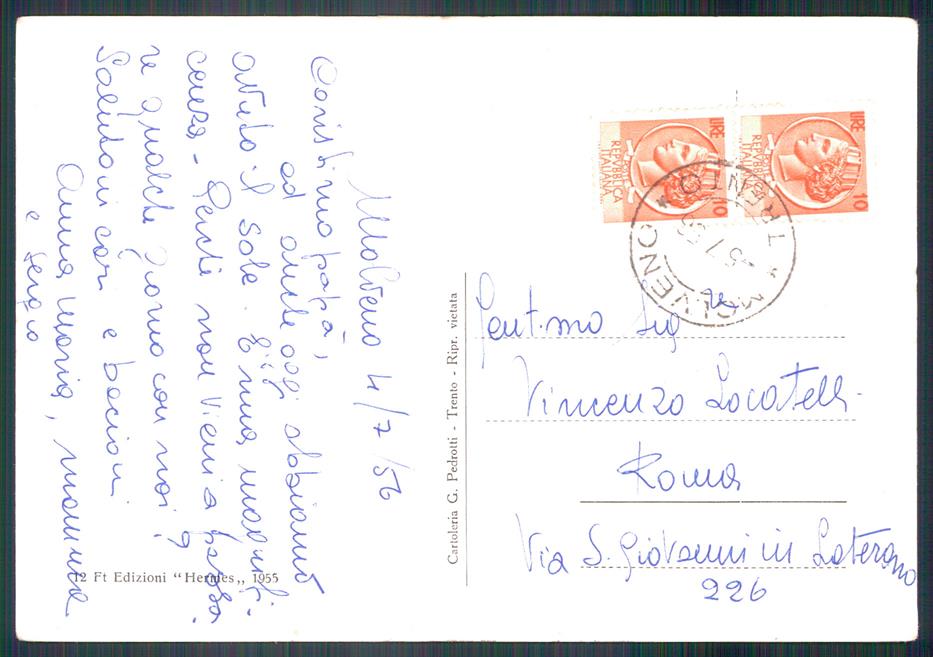 Molveno 4/7/56
Carissimo papà,
ed anche oggi abbiamo
avuto il sole. È una magnifi-
cenza - Perchè non vieni a passa-
re qualche giorno con noi?
Salutoni cari e bacioni
Anna Maria, mamma
e Sergio
12 Ft Edizioni "Hermes,, 1955
Cartoleria G. Pedrotti - Trento - Ripr. vietata
LIRE 10
REPVBBLICA
ITALIANA
LIRE 10
REPVBBLICA
ITALIANA
MOLVENO * TRENTO *
Gent.mo Sig
Vincenzo Locatelli
Roma
Via S. Giovanni in Laterano
226